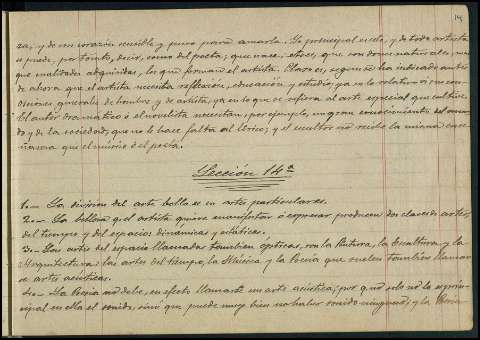 14
za, y de un corazón sensible y puro para amarla. Lo principal es ella, y de todo artista
se puede, por tanto, decir, como del poeta; que nace, etc.ec, que son dones naturales, mas
que cualidades adquiridas, los que forman el artista. Claro es, según se ha indicado antes
de ahora, que el artista necesita reflexión, educación y estudio, ya en lo relativo á sus con-
diciones generales de hombre y de artista, ya en lo que se refiera al arte especial que cultive.
El autor dramático ó el novelista necesitan, por ejemplo, un gran conocimiento del mun-
do y de la sociedad, que no le hace falta al lírico; y el escultor no recibe la misma ense-
ñanza que el músico ó el poeta.
Sección 14ª
1.- La division del arte bello es en artes particulares.
2.- La belleza q. el artista quiere manifestar ó expresar producen dos clases de artes,
del tiempo y del espacio dinámicas y estáticas.
3.- Las artes del espacio llamadas tambien ópticas, son la Pintura, la Escultura y la
Arquitectura y las artes del tiempo, la Música y la Poesía que suelen tambien llamar-
se artes acústicas.
4.- La Poesía no debe, en efecto llamarse un arte acústica; por q. no solo no es prin-
cipal en ella el sonido, sinó que puede muy bien no haber sonido ninguno, y la Poesía